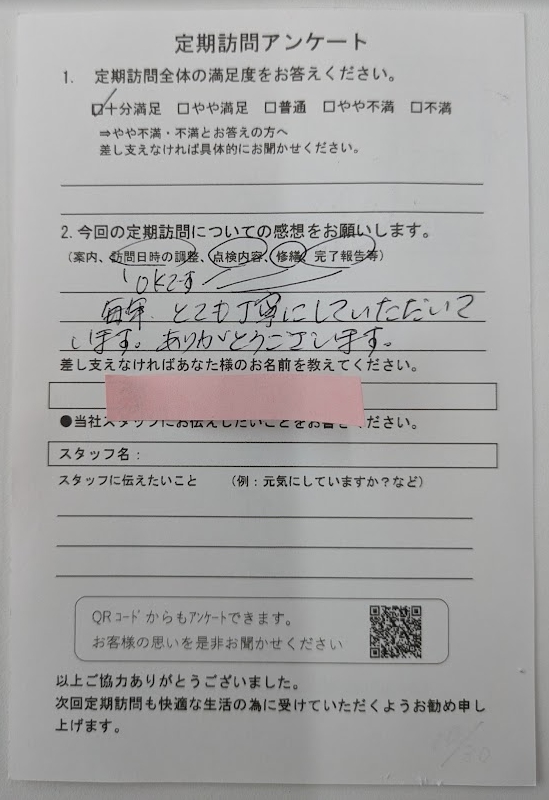 定期訪問アンケート
1. 定期訪問全体の満足度をお答えください。
☑十分満足 □やや満足 □普通 □やや不満 □不満
⇒やや不満・不満とお答えの方へ
差し支えなければ具体的にお聞かせください。
2.今回の定期訪問についての感想をお願いします。
(案内、訪問日時の調整、点検内容、修繕、完了報告等)
OKです
毎年、とても丁寧にしていただいて
います。ありがとうございます。
差し支えなければあなた様のお名前を教えてください。
●当社スタッフにお伝えしたいことをお書きください。
スタッフ名:
スタッフに伝えたいこと (例:元気にしていますか?など)
QRコードからもアンケートできます。
お客様の思いを是非お聞かせください
以上ご協力ありがとうございました。
次回定期訪問も快適な生活の為に受けていただくようお勧め申し
上げます。